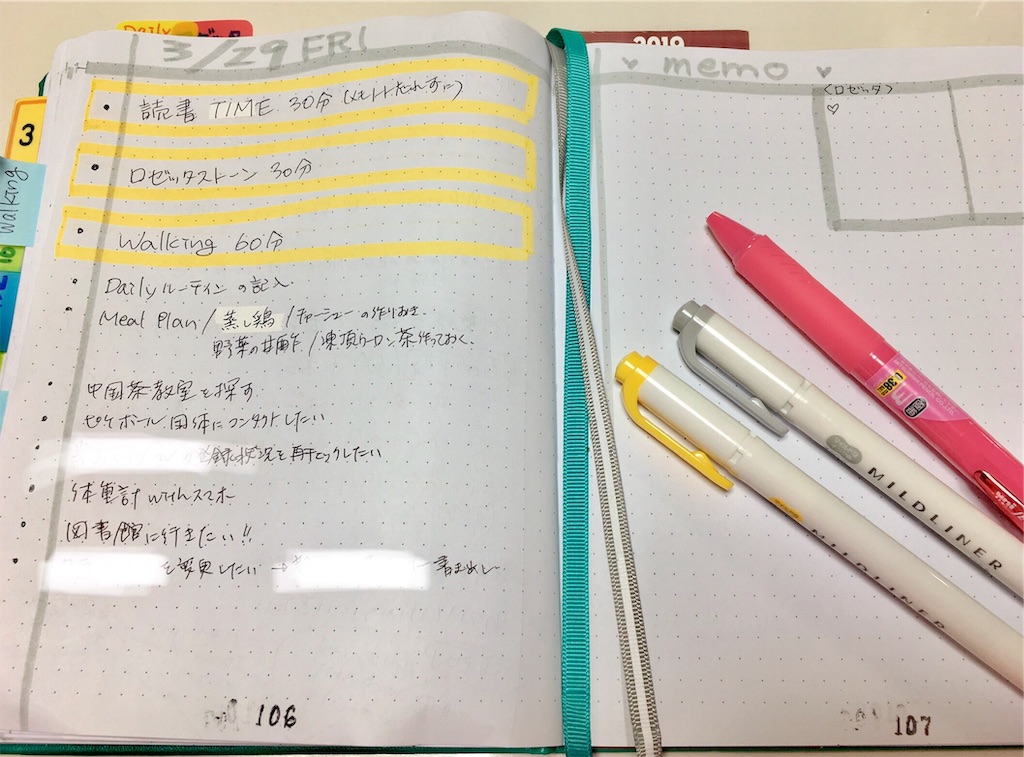 Daily
3/29 FRI
・ 読書 TIME 30分 (メモトトだれずに)
・ ロゼッタストーン 30分
・ Walking 60分
・ Daily ルーティンの記入
・ Meal Plan / 蒸し鶏 / チャーシューの作りおき
野菜の甘酢 / 凍頂ウーロン茶作っておく
・ 中国茶教室を探す
・ 団体にコンタクトしたい
登録状況を再チェックしたい
・ 体重計 with スマホ
・ 図書館に行きたい!!
・ を変更したい → 書き出し
106
3
Walking
2019
♡ memo ♡
<ロゼッタ>
♡
107
0.38
MILDLINER
MILDLINER